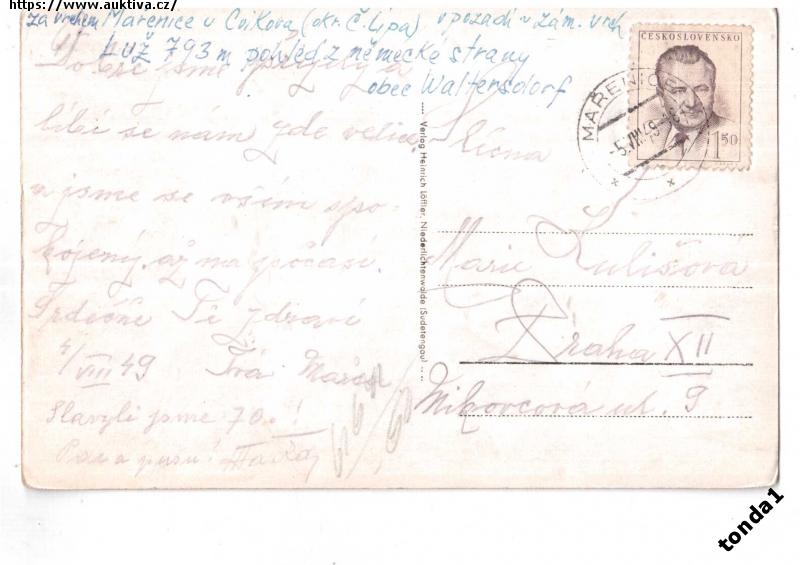 https://www.auktiva.cz/
za vrchem Mařenice u Cvikova (okr. Č. Lípa) v pozadí v zám. vrch
Luž 793 m pohled z německé strany
obec Waltersdorf
Dobře jsme
líbí se nám zde velice.
a jsme se vším spo-
kojeny, až na počasí.
Srdečně Tě zdraví
4/VIII 49 Tvá
Slavili jsme 70.!
Pac a pusu!
Verlag Heinrich Löffler, Niederlichtenwalde (Sudetengau)
ČESKOSLOVENSKO
1 50
MAŘENICE
-5.VIII.49
Slečna
Marie
Praha XII
ul. 9
tonda1